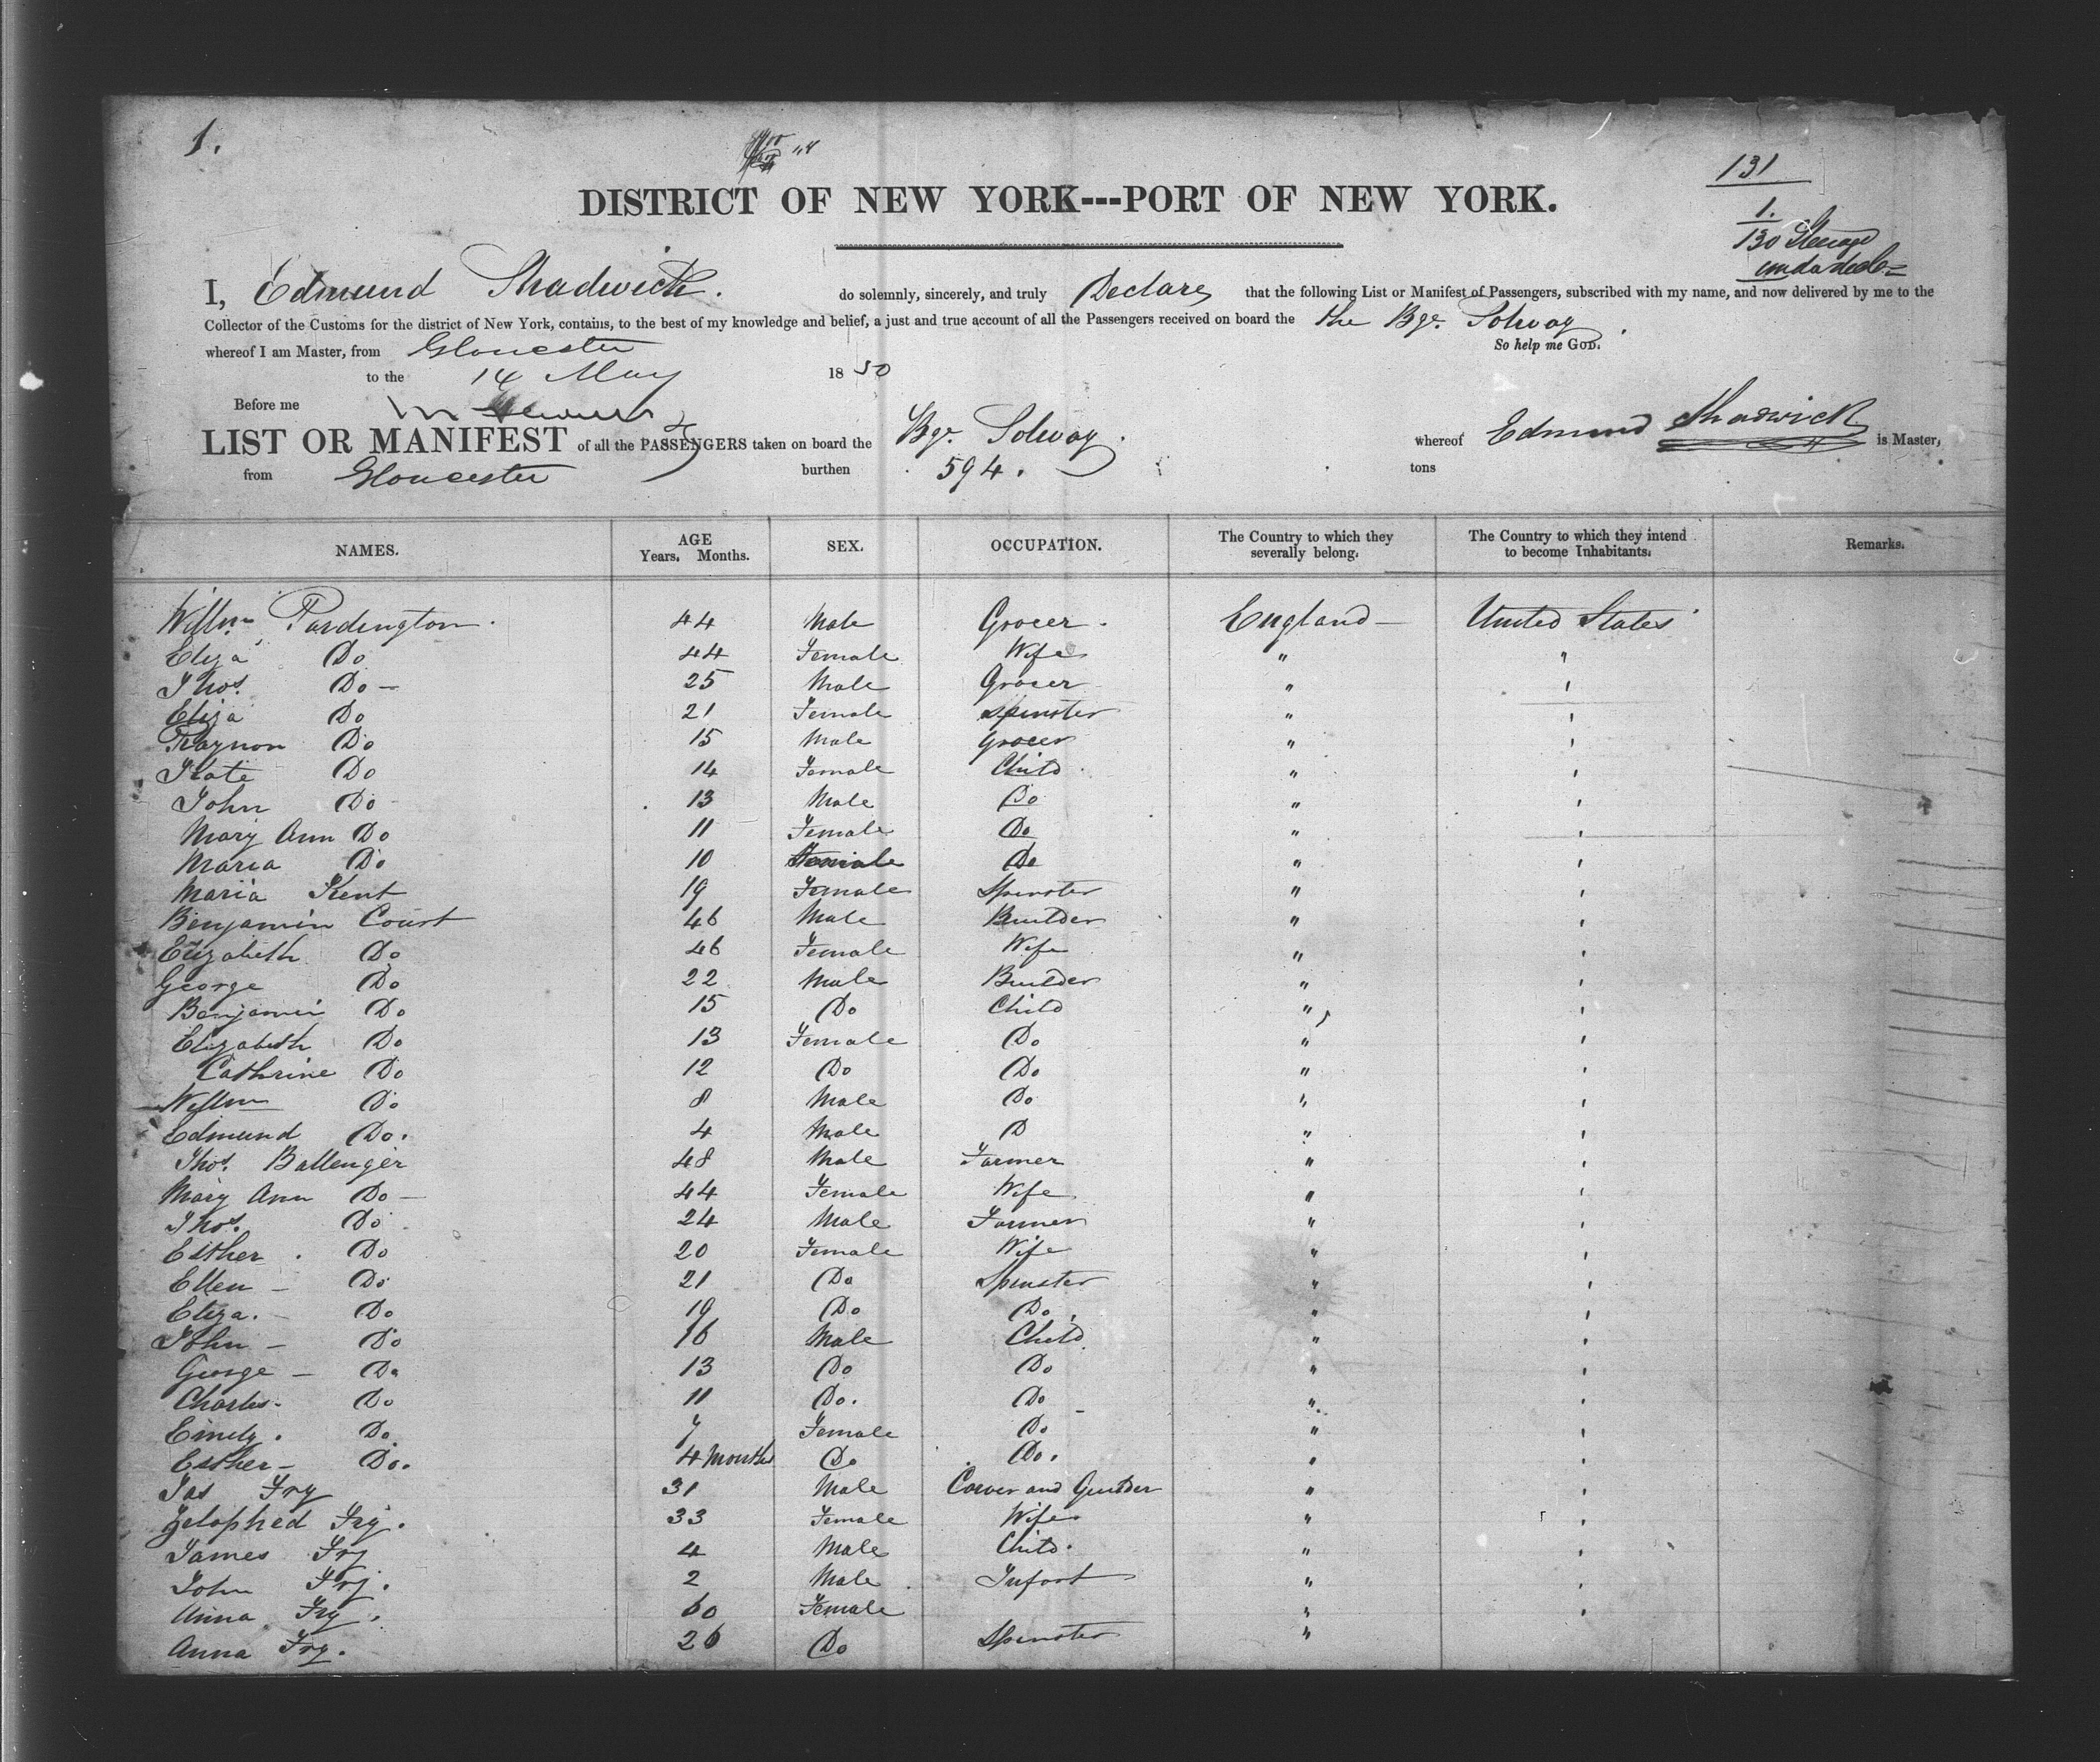 1.
131
DISTRICT OF NEW YORK---PORT OF NEW YORK.
1.
130 Steerage
I, Edmund Shadwick. do solemnly, sincerely, and truly Declare that the following List or Manifest of Passengers, subscribed with my name, and now delivered by me to the
Collector of the Customs for the district of New York, contains, to the best of my knowledge and belief, a just and true account of all the Passengers received on board the the Bge. Solway
whereof I am Master, from Gloucester So help me GOD.
to the 14 May 1850
Before me
LIST OR MANIFEST of all the PASSENGERS taken on board the Bge. Solway. whereof Edmund Shadwick is Master,
from Gloucester burthen 594. tons
NAMES. AGE Years. Months. SEX. OCCUPATION. The Country to which they severally belong. The Country to which they intend to become Inhabitants. Remarks.
Willm Pardington. 44 Male Grocer. England United States
Eliza Do 44 Female Wife " "
Thos. Do 25 Male Grocer " '
Eliza Do 21 Female Spinster " '
Raynon Do 15 Male Grocer " '
Kate Do 14 Female Child " '
John Do 13 Male Do " '
Mary Ann Do 11 Female Do " '
Maria Do 10 Female Do " '
Maria Kent 19 Female Spinster " '
Benjamin Court 46 Male Builder " '
Elizabeth Do 46 Female Wife " '
George Do 22 Male Builder " '
Benjamin Do 15 Do Child " '
Elizabeth Do 13 Female Do " '
Cathrine Do 12 Do Do " '
Willm Do 8 Male Do " '
Edmund Do. 4 Male D " '
Thos. Ballenger 48 Male Farmer " '
Mary Ann Do 44 Female Wife " '
Thos. Do 24 Male Farmer " '
Esther Do 20 Female Wife " '
Ellen Do 21 Do Spinster " '
Eliza. Do 19 Do Do " '
John Do 16 Male Child " '
George Do 13 Do Do " '
Charles Do 11 Do. Do " '
Emily. Do 7 Female Do " '
Esther Do. 4 Months Do Do. " '
Jas Fry 31 Male Carver and Guilder " '
Zelophed Fry. 33 Female Wife " '
James Fry 4 Male Child. " '
John Fry. 2 Male Infant " '
Anna Fry. 60 Female " '
Anna Fry. 26 Do Spinster "